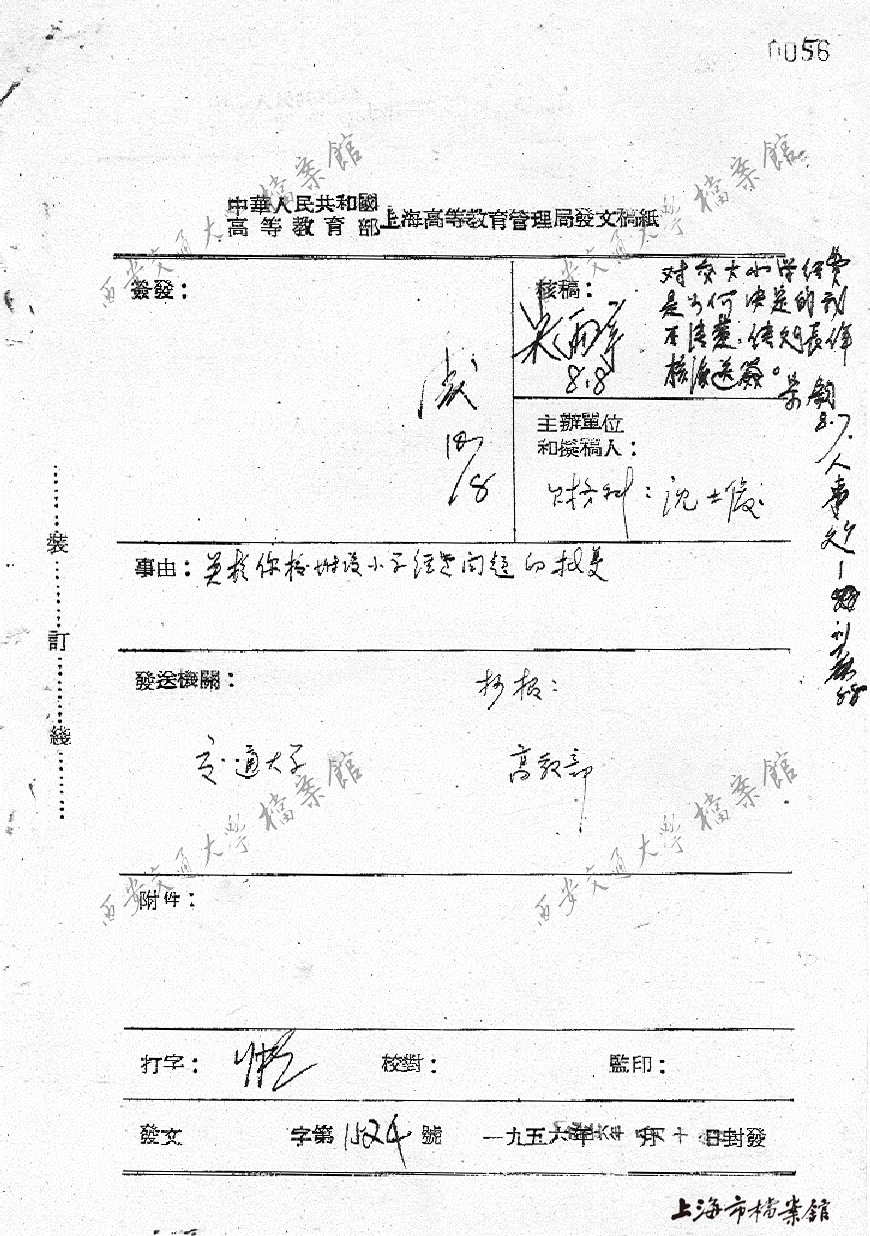 0056
中華人民共和國
高等教育部
上海高等教育管理局發文稿紙
簽發：
18/8
核稿：
8.8
对交大小学经费
是如何决定的我
不清楚，请处長
核後送簽。
8.7.
人事处
主辦單位
和擬稿人：
财务科：沈士俊
事由：关於你校附设小学经费问题的批复
發送機關：
抄报：
交通大学
高教部
附件：
打字：
校對：
監印：
發文 字第1524號 一九五六年 月 十 日封發
裝
訂
綫
西安交通大學檔案館
西安交通大學檔案館
西安交通大學檔案館
西安交通大學檔案館
上海市檔案館